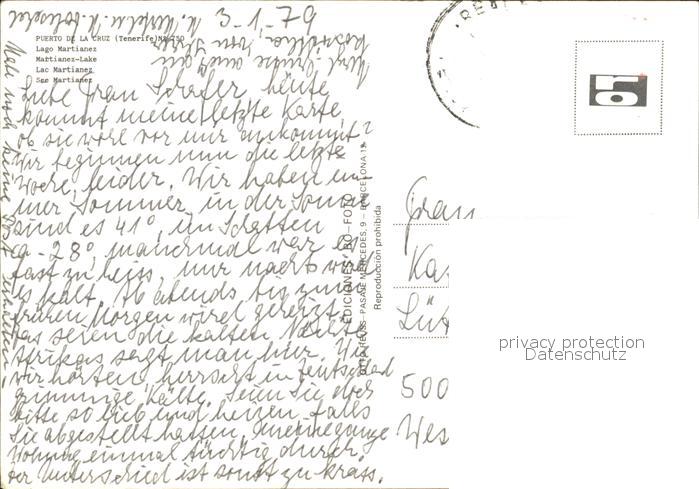 PUERTO DE LA CRUZ (Tenerife)
Lago Martianez
Martianez-Lake
Lac Martianez
See Martianez
Liebe Frau Schäfer, heute
kommt meine letzte Karte,
ob sie wohl vor mir ankommt?
Wir beginnen nun die letzte
Woche, leider. Wir haben im-
mer Sommer, in der Sonne
sind es 41°, im Schatten
ca. 28°, manchmal war es
fast zu heiss, nur nachts wird
es kalt. Ab abends bis zum
frühen Morgen wird geheizt.
das seien die kalten Nächte
Afrikas sagt man hier. Wie
wir hörten, herrscht in Deutschland
grimmige Kälte. Seien Sie doch
bitte so lieb und heizen, falls
Sie abgestellt hatten, meine ganze
Wohnung einmal tüchtig durch.
der Unterschied ist sonst zu krass.
Hab noch keine Post erhalten!
3-1-79
EDICIONES RO-FOTO
PASAJE MERCEDES, 9 - BARCELONA-13
Reproducción prohibida
ro
Frau
Ka
Lüt
500
Wes
privacy protection
Datenschutz